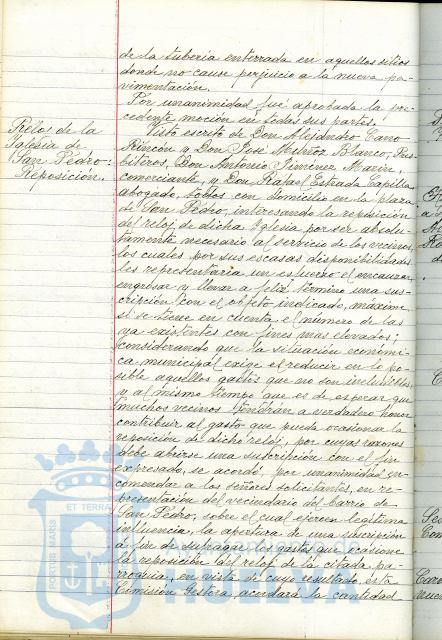 de la tubería enterrada en aquellos sitios
donde no cause perjuicio a la nueva pa-
vimentación.
Por unanimidad fué aprobada la pre-
cedente moción en todas sus partes.
Reloj de la
Iglesia de
San Pedro:
Reposición.
Visto escrito de Don Alejandro Cano
Rincón y Don José Muñoz Blanco, Pres-
bíteros, Don Antonio Jiménez Marín,
comerciante, y Don Rafael Estrada Capilla,
abogado, todos con domicilio en la plaza
de San Pedro, interesando la reposición
del reloj de dicha Iglesia por ser absolu-
tamente necesario al servicio de los vecinos,
los cuales por sus escasas disponibilidades
les representaría un esfuerzo el encauzar,
engrosar y llevar a feliz término una sus-
cripción con el objeto indicado, máxime
si se tiene en cuenta el número de las
ya existentes con fines mas elevados;
considerando que la situación económi-
ca municipal exige el reducir en lo po-
sible aquellos gastos que no son ineludibles,
y al mismo tiempo que es de esperar que
muchos vecinos tendrán a verdadero honor
contribuir al gasto que pueda ocasionar la
reposición de dicho reloj, por cuyas razones
debe abrirse una suscripción con el fin
expresado, se acordó por unanimidad en-
comendar a los señores solicitantes, en re-
presentación del vecindario del barrio de
San Pedro, sobre el cual ejercen legítima
influencia, la apertura de una suscripción
a fin de sufragar los gastos que ocasione
la reposición del reloj de la citada pa-
rroquia, en vista de cuyo resultado, esta
Comisión Gestora, acordará la cantidad
PORTUS MARIS ET TERRAE
HUELVA